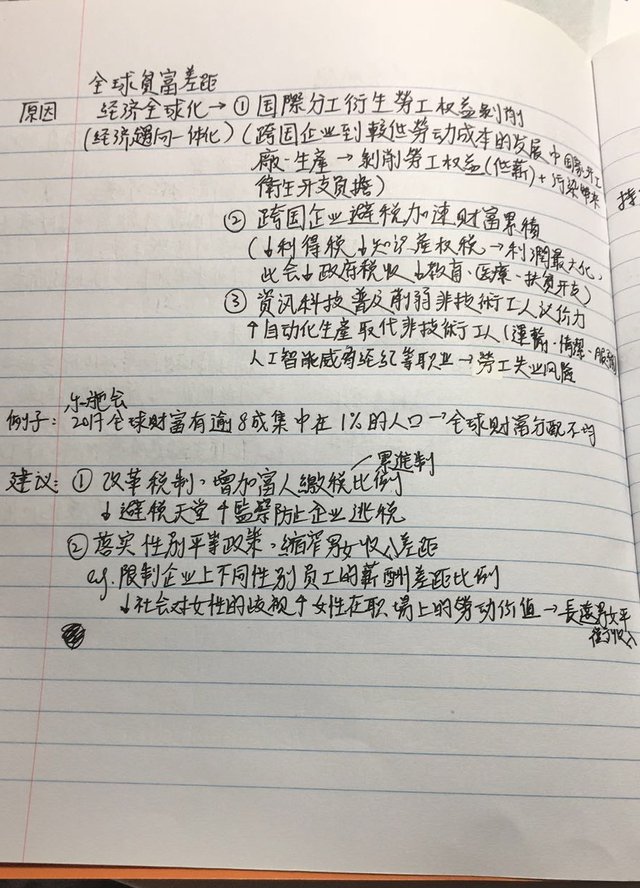 全球貧富差距
原因 经济全球化→① 国際分工衍生勞工权益剝削
(经济趋向一体化) (跨国企业到較低勞动成本的发展中国家开工
廠·生產→剝削勞工权益(低薪)+污染帶來
衛生开支負擔)
② 跨国企业避税加速財富累積
(↓利得税 ↓知识產权税→利潤最大化,
此会↓政府税收 ↓教育、医療、扶贫开支)
③ 資讯科技普及削弱非技術工人议价力
↑自动化生產取代非技術工人(運輸·清潔·服務
人工智能威脅经纪等职业→勞工失业风险
乐施会
例子: 2017全球財富有逾8成集中在1%的人口→全球財富分配不均
累進制
建议: ① 改革税制,增加富人繳税比例
↓避税天堂 ↑監察防止企业逃税
② 落实性別平等政策,縮窄男女收入差距
e.g.限制企业上不同性別员工的薪酬差距比例
↓社会对女性的歧视 ↑女性在职場上的勞动价值→長遠男女平
衡收入
持